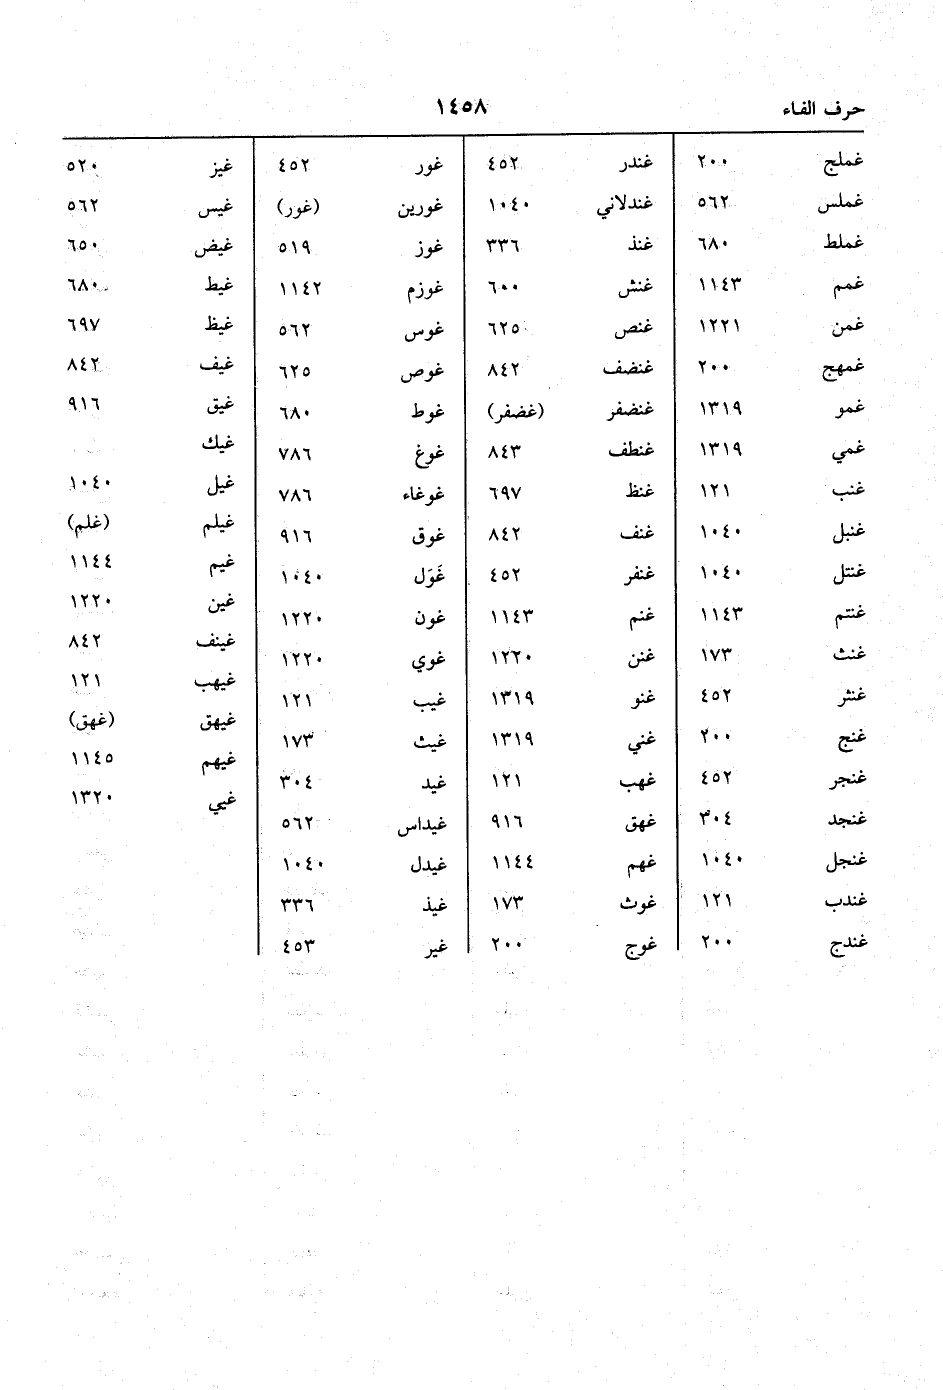 حرف الفاء ١٤٥٨
غملج ٢٠٠
غملس ٥٦٢
غملط ٦٨٠
غمم ١١٤٣
غمن ١٢٢١
غمهج ٢٠٠
غمو ١٣١٩
غمي ١٣١٩
غنب ١٢١
غنبل ١٠٤٠
غنتل ١٠٤٠
غنتم ١١٤٣
غنث ١٧٣
غنثر ٤٥٢
غنج ٢٠٠
غنجر ٤٥٢
غنجد ٣٠٤
غنجل ١٠٤٠
غندب ١٢١
غندج ٢٠٠
غندر ٤٥٢
غندلاني ١٠٤٠
غنذ ٣٣٦
غنش ٦٠٠
غنص ٦٢٥
غنضف ٨٤٢
غنضفر (غضفر)
غنطف ٨٤٣
غنظ ٦٩٧
غنف ٨٤٢
غنفر ٤٥٢
غنم ١١٤٣
غنن ١٢٢٠
غنو ١٣١٩
غني ١٣١٩
غهب ١٢١
غهق ٩١٦
غهم ١١٤٤
غوث ١٧٣
غوج ٢٠٠
غور ٤٥٢
غورين (غور)
غوز ٥١٩
غوزم ١١٤٢
غوس ٥٦٢
غوص ٦٢٥
غوط ٦٨٠
غوغ ٧٨٦
غوغاء ٧٨٦
غوق ٩١٦
غَوَل ١٠٤٠
غون ١٢٢٠
غوي ١٢٢٠
غيب ١٢١
غيث ١٧٣
غيد ٣٠٤
غيداس ٥٦٢
غيدل ١٠٤٠
غيذ ٣٣٦
غير ٤٥٣
غيز ٥٢٠
غيس ٥٦٢
غيض ٦٥٠
غيط ٦٨٠
غيظ ٦٩٧
غيف ٨٤٢
غيق ٩١٦
غيك
غيل ١٠٤٠
غيلم (غلم)
غيم ١١٤٤
غين ١٢٢٠
غينف ٨٤٢
غيهب ١٢١
غيهق (غهق)
غيهم ١١٤٥
غيي ١٣٢٠